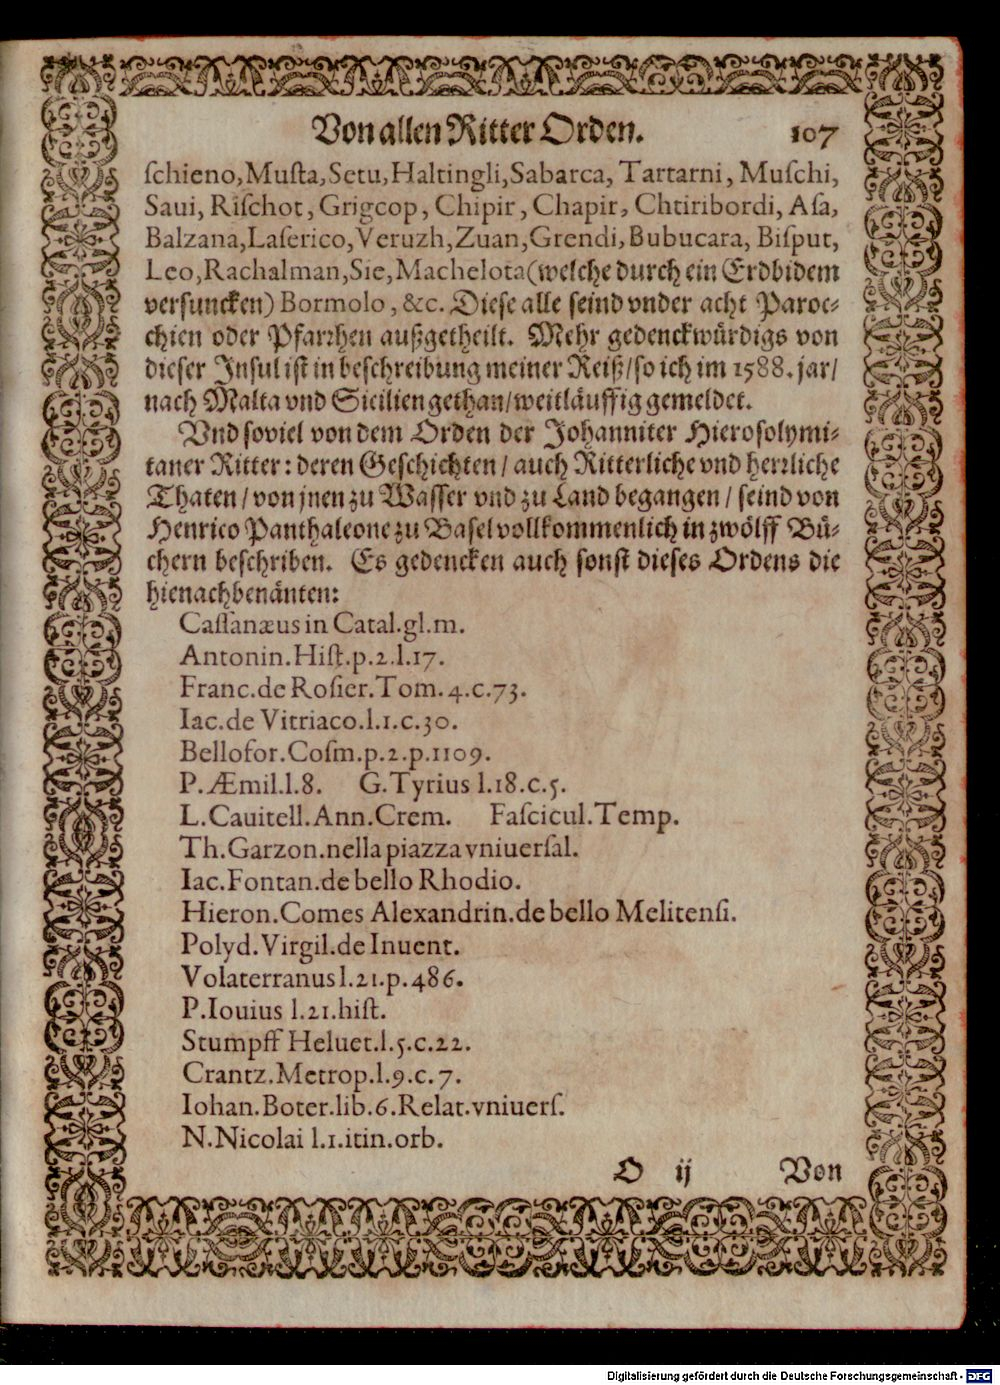 Von allen Ritter Orden. 107
ſchieno, Muſta, Setu, Haltingli, Sabarca, Tartarni, Muſchi,
Saui, Riſchot, Grigcop, Chipir, Chapir, Chtiribordi, Aſa,
Balzana, Laſerico, Veruzh, Zuan, Grendi, Bubucara, Biſput,
Leo, Rachalman, Sie, Machelota (welche durch ein Erdbidem
verſuncken) Bormolo, &c. Dieſe alle ſeind vnder acht Paroc-
chien oder Pfarꝛhen außgetheilt. Mehr gedenckwürdigs von
dieſer Inſul iſt in beſchreibung meiner Reiß/ ſo ich im 1588. jar/
nach Malta vnd Sicilien gethan/ weitläuffig gemeldet.
Vnd ſoviel von dem Orden der Johanniter Hieroſolymi-
taner Ritter: deren Geſchichten/ auch Ritterliche vnd herꝛliche
Thaten/ von jnen zu Waſſer vnd zu Land begangen/ ſeind von
Henrico Panthaleone zu Baſel vollkommenlich in zwölff Bü-
chern beſchriben. Es gedencken auch ſonſt dieſes Ordens die
hienachbenänten:
Caſſanæus in Catal.gl.m.
Antonin.Hiſt.p.2.l.17.
Franc.de Roſier.Tom.4.c.73.
Iac.de Vitriaco.l.1.c.30.
Bellofor.Coſm.p.2.p.1109.
P.Æmil.l.8. G.Tyrius l.18.c.5.
L.Cauitell.Ann.Crem. Faſcicul.Temp.
Th.Garzon.nella piazza vniuerſal.
Iac.Fontan.de bello Rhodio.
Hieron.Comes Alexandrin.de bello Melitenſi.
Polyd.Virgil.de Inuent.
Volaterranus l.21.p.486.
P.Iouius l.21.hiſt.
Stumpff Heluet.l.5.c.22.
Crantz.Metrop.l.9.c.7.
Iohan.Boter.lib.6.Relat.vniuerſ.
N.Nicolai l.1.itin.orb.
O ij Von
Digitalisierung gefördert durch die Deutsche Forschungsgemeinschaft - DFG